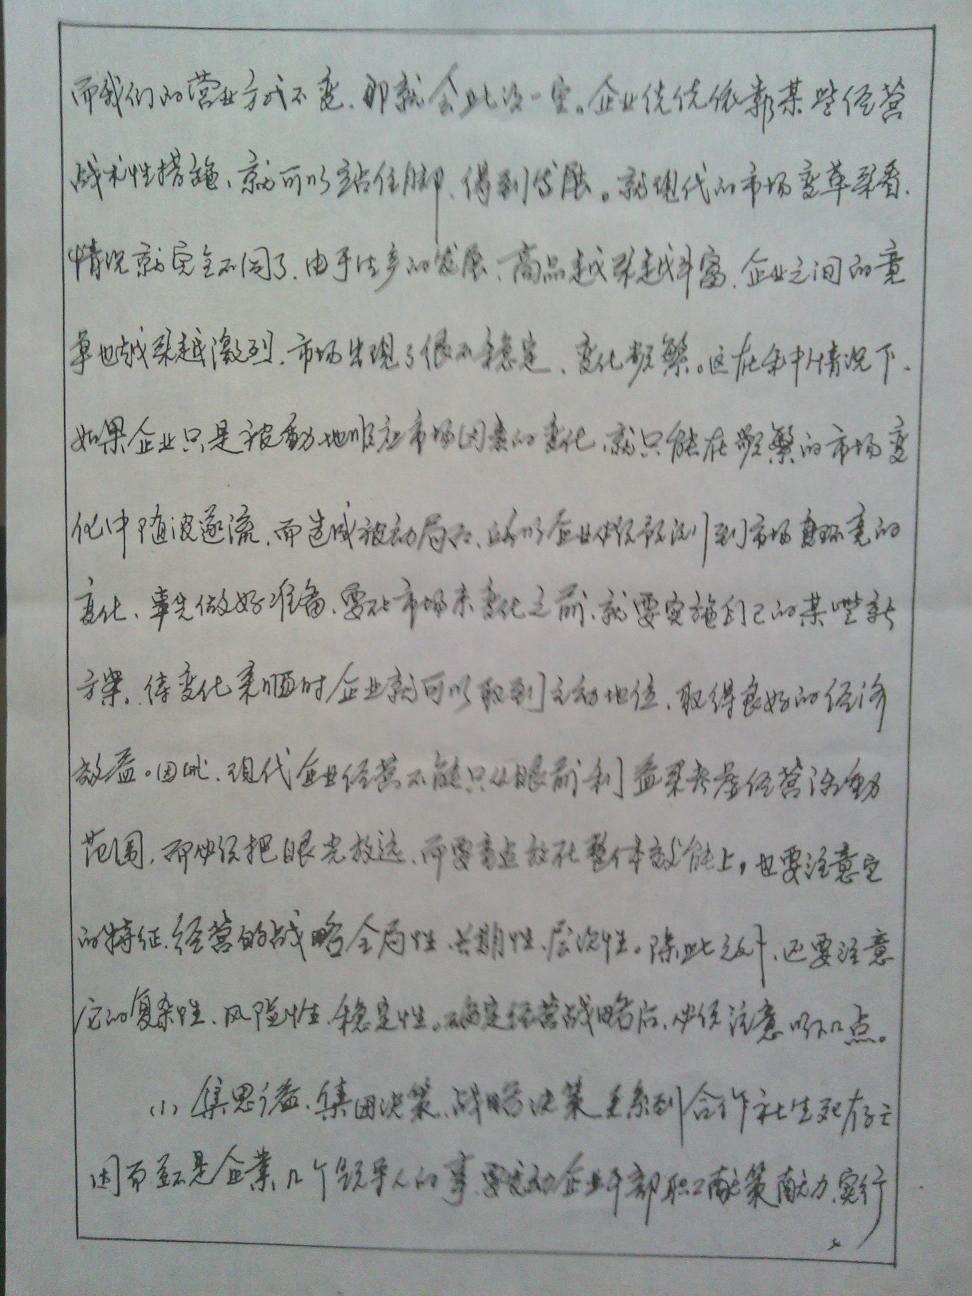 而我们的营业方式不变、那就会比次一定。企业优优依靠某些经营
战术性措施、就可以站住脚、得到发展。就现代的市场变革来看.
情况就完全不同了.由于生产的发展、商品越来越丰富.企业之间的竞
争也越来越激烈.市场出现了很不稳定、变化频繁。这在条中情况下.
如果企业只是被動地顺应市场因素的变化.就只能在频繁的市场变
化中随波逐流.而造成被动局面、所以企业必须预测到市场环竟的
变化、率先做好准备.要在市场未变化之前.就要实施自己的某些新
方案.待变化来临时企业就可以取到主动地位.取得良好的经济
效益。因此.现代企业经营不能只从眼前利益来考虑经营活動
范围.而必须把眼光放远.而要着点放在整体效能上,也要注意它
的特征.经营的战略全局性、长期性、层次性。除此之外.还要注意
它的复杂性、风险性、稳定性。确定经营战略后.必须注意以下几点。
(1)集思广益.集团决策.战略决策关系到合作社生死存亡
因而不是企業几个领导人的事.要发动企业干部职工献策献力.实行